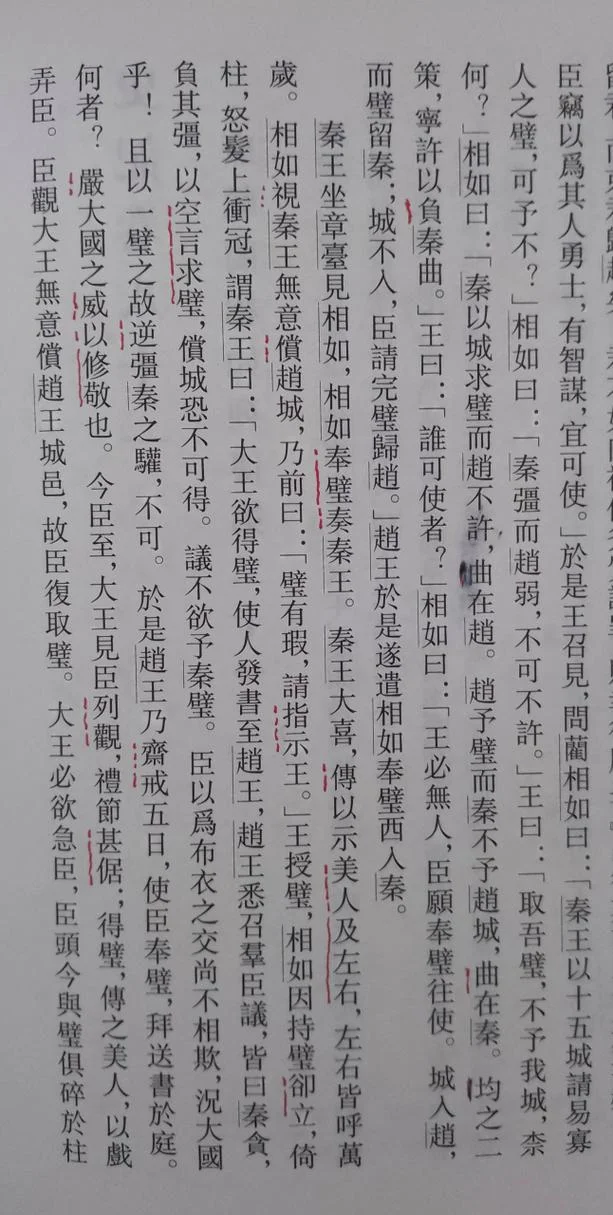 臣竊以爲其人勇士，有智謀，宜可使。」於是王召見，問藺相如曰：「秦王以十五城請易寡
人之璧，可予不？」相如曰：「秦彊而趙弱，不可不許。」王曰：「取吾璧，不予我城，柰
何？」相如曰：「秦以城求璧而趙不許，曲在趙。趙予璧而秦不予趙城，曲在秦。均之二
策，寧許以負秦曲。」王曰：「誰可使者？」相如曰：「王必無人，臣願奉璧往使。城入趙，
而璧留秦；城不入，臣請完璧歸趙。」趙王於是遂遣相如奉璧西入秦。
秦王坐章臺見相如，相如奉璧奏秦王。秦王大喜，傳以示美人及左右，左右皆呼萬
歲。相如視秦王無意償趙城，乃前曰：「璧有瑕，請指示王。」王授璧，相如因持璧卻立，倚
柱，怒髮上衝冠，謂秦王曰：「大王欲得璧，使人發書至趙王，趙王悉召羣臣議，皆曰秦貪，
負其彊，以空言求璧，償城恐不可得。議不欲予秦璧。臣以爲布衣之交尚不相欺，況大國
乎！且以一璧之故逆彊秦之驩，不可。於是趙王乃齋戒五日，使臣奉璧，拜送書於庭。
何者？嚴大國之威以修敬也。今臣至，大王見臣列觀，禮節甚倨；得璧，傳之美人，以戲
弄臣。臣觀大王無意償趙王城邑，故臣復取璧。大王必欲急臣，臣頭今與璧俱碎於柱